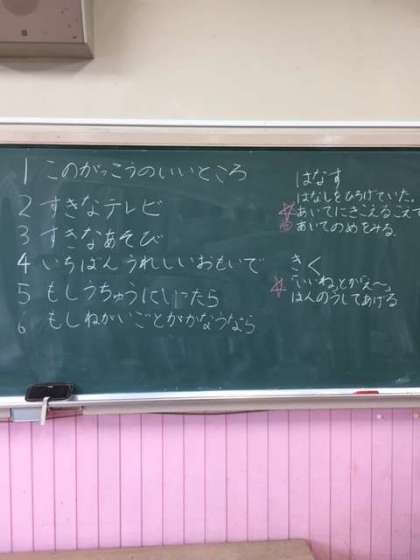 1 このがっこうのいいところ
2 すきなテレビ
3 すきなあそび
4 いちばんうれしいおもいで
5 もしうちゅうにいったら
6 もしねがいごとがかなうなら
はなす
はなしをひろげていた。
あいてにきこえるこえで
あいてのめをみる。
きく
「いいね」とか「え〜」
はんのうしてあげる